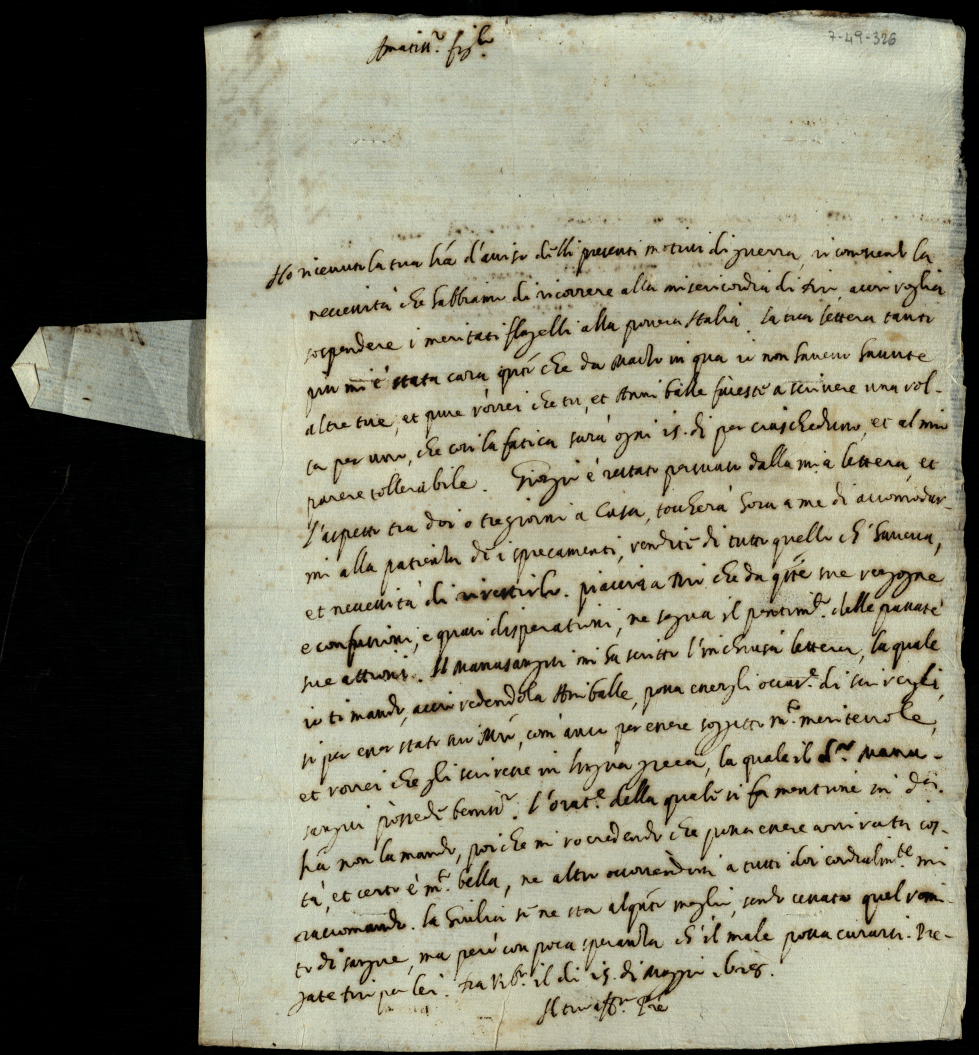 7-49-326
Amatiss.º figl.º
Ho ricevuto la tua l'ra d'aviso delli presenti motivi di guerra, vi comprendo la
necessità che habbiamo di ricorrere alla misericordia di Dio, acciò voglia
sospendere i meritati flagelli alla povera Italia. La tua lettera tanto
più mi è stata cara q.to che da Marzo in qua io non havevo havute
altre tue, et pure vorrei che tu, et Annibale foreste a scrivere una vol-
ta per uno, che così la fatica sarà ogni 15. dì per ciascheduno, et al mio
parere tollerabile. Giorgio è restato persuaso dalla mia lettera, et
l'aspetto tra doi o tre giorni a Casa, toccherà hora a me di accomodar-
mi alla patienza de i sprecamenti, vendite di tutto quello ch'haveva,
et necessità di rivestirlo. piaccia a Dio che da q.ste sue vergogne
e confusioni, e quasi disperationi, ne segua il pentim.to delle passate
sue attioni. Il Manusangui mi ha scritto l'inchiusa lettera, la quale
io ti mando, acciò vedendola Annibale, possa essergli occas.e di scrivergli,
si per esser stato suo M'ro, com'anco per essere soggetto m.to meritevole,
et vorrei che gli scrivesse in lingua greca, la quale il S.or Manu-
sangui possede beniss.º. L'orat.e della quale si fa mentione in d.a
l'ra non la mando, poiche mi vo credendo che possa essere arrivata cos-
tà, et certo è m.to bella, ne altro occorrendomi a tutti doi cordialm.te mi
raccomando. La Giulia se ne sta alq.to meglio, sendo cessato quel vomi-
to di sangue, ma però con poca speranza ch'il male possa curarsi. Pre-
gate Dio per lei. Da Urb.º il dì 15. di Maggio
Il tuo aff.mo P're